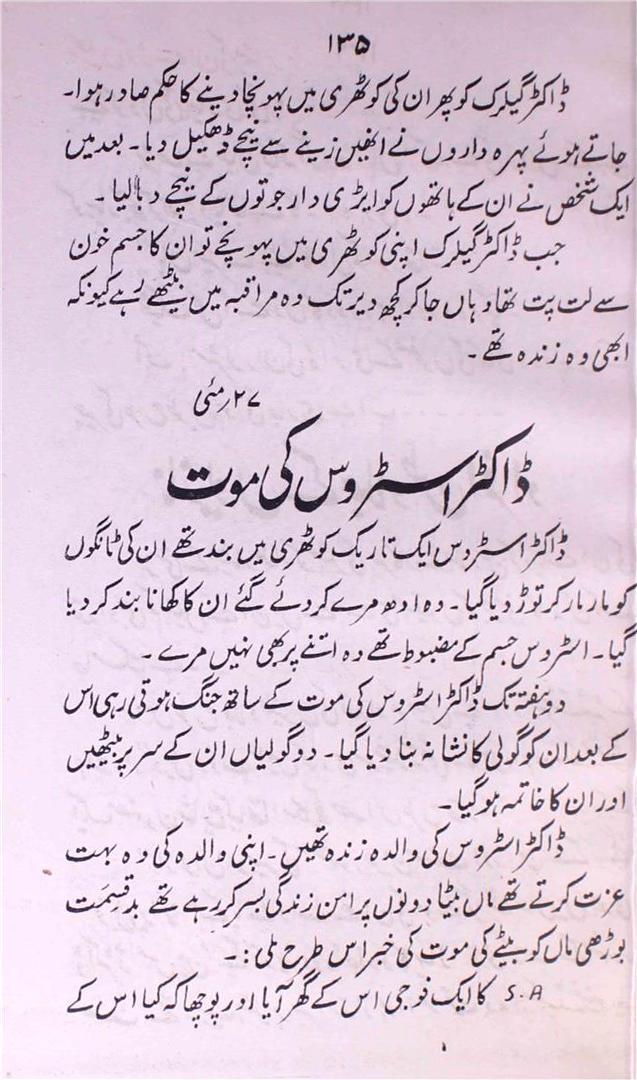 ۱۳۵
ڈاکٹر گیلرک کو پھر ان کی کوٹھری میں پہونچا دینے کا حکم صادر ہوا۔
جاتے ہوئے پہرہ داروں نے انھیں زینے سے نیچے ڈھکیل دیا۔ بعد میں
ایک شخص نے ان کے ہاتھوں کو ایڑی دار جوتوں کے نیچے دبا لیا۔
جب ڈاکٹر گیلرک اپنی کوٹھری میں پہونچے تو ان کا جسم خون
سے لت پت تھا وہاں جا کر کچھ دیر تک وہ مراقبہ میں بیٹھے رہے کیونکہ
ابھی وہ زندہ تھے۔
۲۷ مئی
ڈاکٹر اسٹروس کی موت
ڈاکٹر اسٹروس ایک تاریک کوٹھری میں بند تھے ان کی ٹانگوں
کو مار مار کر توڑ دیا گیا۔ وہ ادھ مرے کر دئے گئے ان کا کھانا بند کر دیا
گیا۔ اسٹروس جسم کے مضبوط تھے وہ اتنے پر بھی نہیں مرے۔
دو ہفتہ تک ڈاکٹر اسٹروس کی موت کے ساتھ جنگ ہوتی رہی اس
کے بعد ان کو گولی کا نشانہ بنا دیا گیا۔ دو گولیاں ان کے سر پر بیٹھیں
اور ان کا خاتمہ ہو گیا۔
ڈاکٹر اسٹروس کی والدہ زندہ تھیں۔ اپنی والدہ کی وہ بہت
عزت کرتے تھے ماں بیٹا دونوں پر امن زندگی بسر کر رہے تھے بدقسمت
بوڑھی ماں کو بیٹے کی موت کی خبر اس طرح ملی :۔
S.A کا ایک فوجی اس کے گھر آیا اور پوچھا کہ کیا اس کے